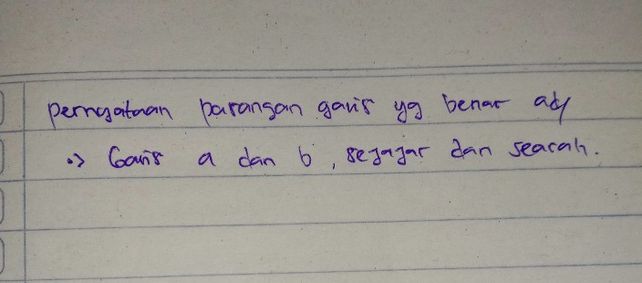 pernyataan parangan garis yg benar ady
•> Garis a dan b, sejajar dan searah.